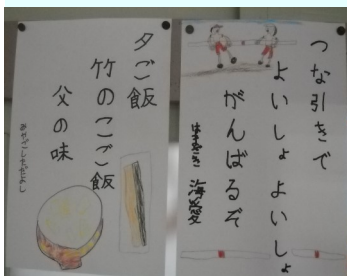 つな引きで
よいしょ よいしょ
がんばるぞ
夕ご飯
竹のこご飯
父の味